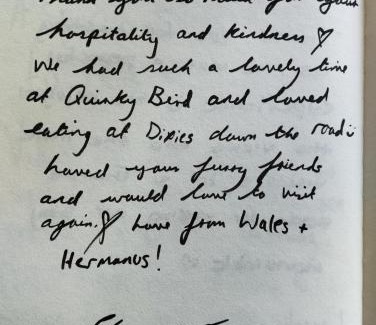 Thank you so much for your
hospitality and kindness ♡
We had such a lovely time
at Quirky Bird and loved
eating at Dixies down the road :
Loved your furry friends
and would love to visit
again. ♡ Love from Wales +
Hermanus!